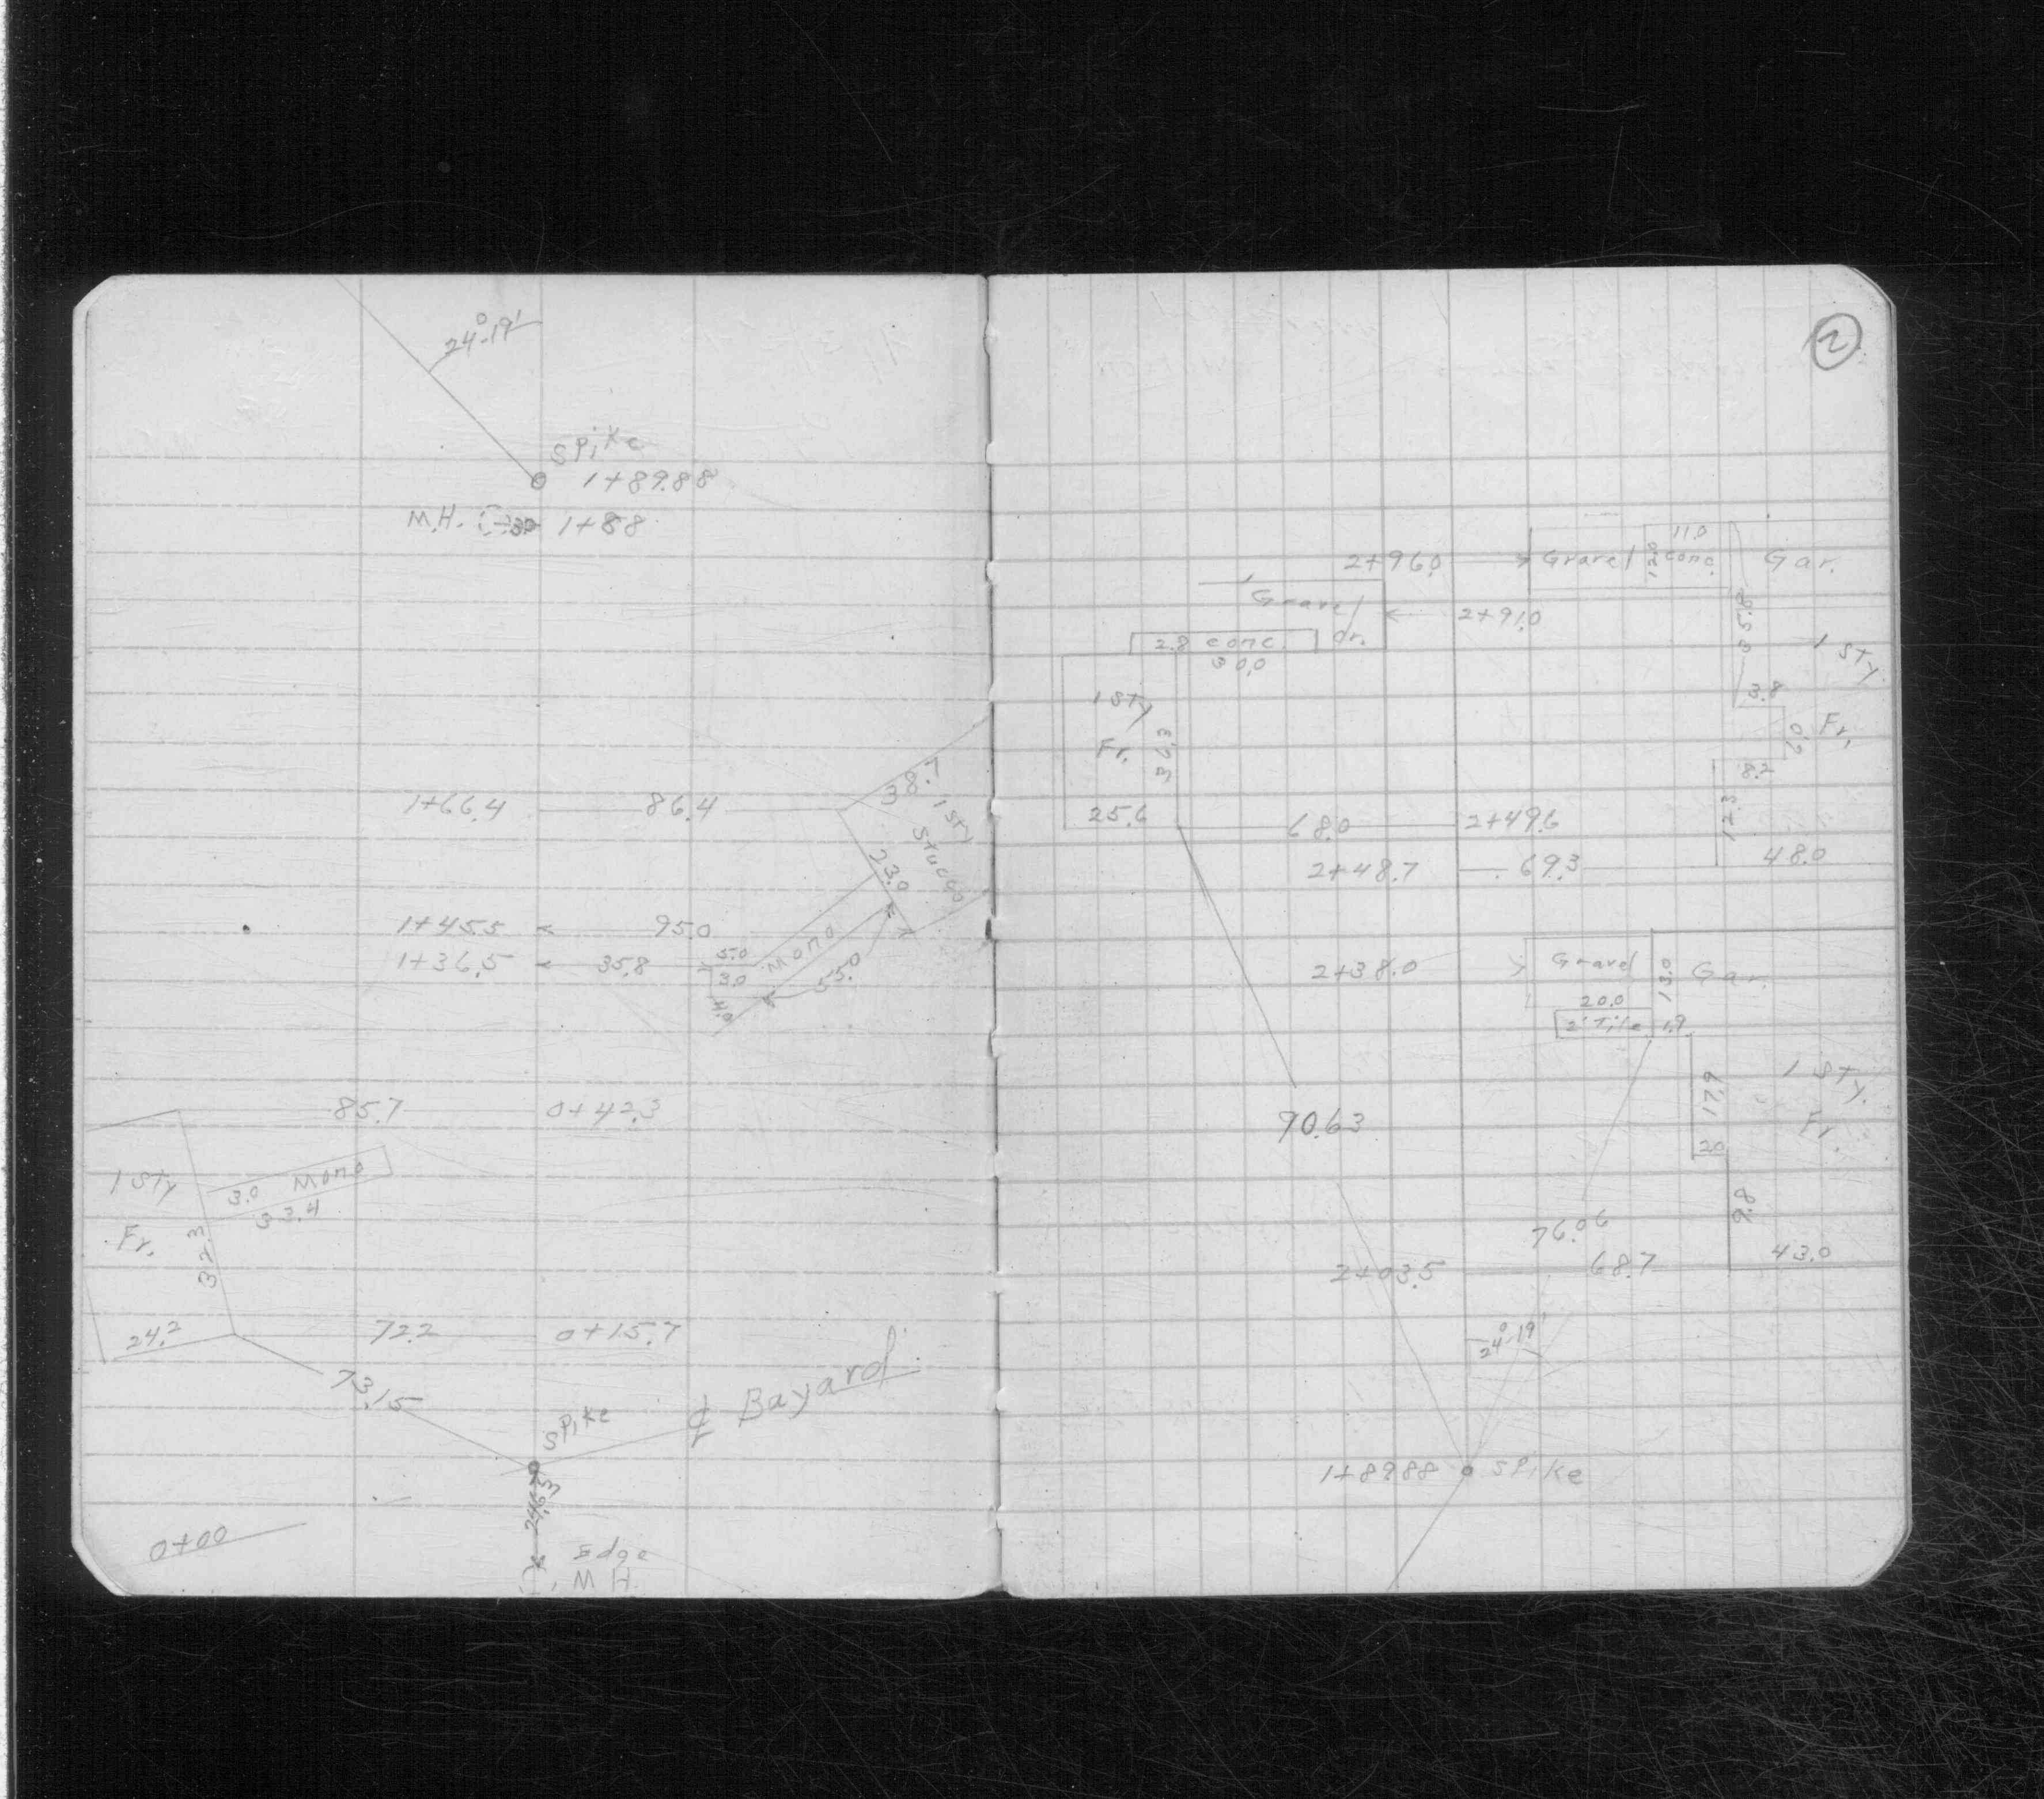 24°-19'
Spike
1+89.88
M.H. 3.0 1+88
38.7
1 Sty
Stucco
1+66.4 86.4
23.0
1+45.5 95.0
1+36.5 35.8 5.0 Mono
3.0
4.0 55.0
85.7 0+42.3
1 Sty 3.0 Mono
33.4
Fr. 32.3
24.2 72.2 0+15.7
73.15
Spike ⅊ Bayard
24.63
0+00
Edge
M H
2
2+96.0 Gravel 12.0 11.0 Conc. Gar.
Gravel 2+91.0
2.8 conc. dr.
30.0
35.8 1 Sty.
1 Sty 3.8
Fr. 36.3 6.0 Fr.
8.2
25.6 68.0 2+49.6 12.3
2+48.7 69.3 48.0
2+38.0 Gravel 13.0 Gar.
20.0
2' Tile 1.9
17.9 1 Sty.
90.63 Fr.
2.0
9.8
76.06
2+03.5 68.7 43.0
24°-19'
1+89.88 Spike